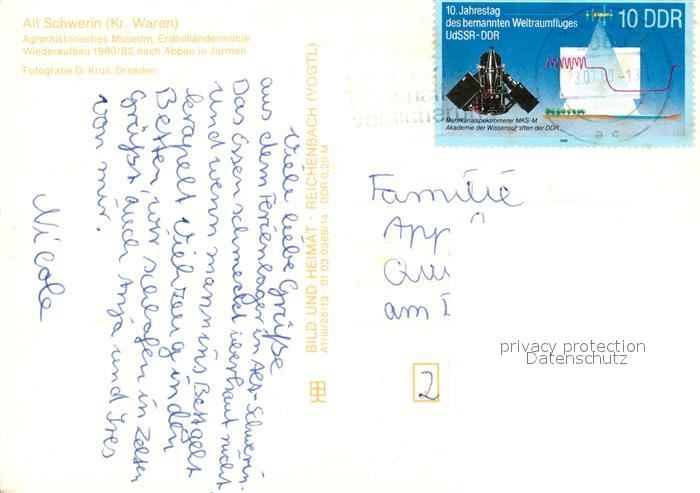 Alt Schwerin (Kr. Waren)
Agrarhistorisches Museum, Erdholländermühle
Wiederaufbau 1980/82 nach Abbau in Jarmen
Fotografie D. Krull, Dresden
10. Jahrestag
des bemannten Weltraumfluges
UdSSR-DDR
10 DDR
Mehrkanalspektrometer MKS-M
Akademie der Wissenschaften der DDR
1988
Viele liebe Grüße
aus dem Ferienlager in Alt-Schwerin.
Das Essen schmeckt überhaut nicht
und wenn mann ins Bett geht
krapelt Viehzeug in den
Betten, wir schlafen in Zelten
Grüßt auch Anja und
von mir.
Nicole
BILD UND HEIMAT · REICHENBACH (VOGTL)
A1/III/26/13 · 01 03 0369/14 · DDR 0,20 M
Familie
App
Qu
am
2
privacy protection
Datenschutz